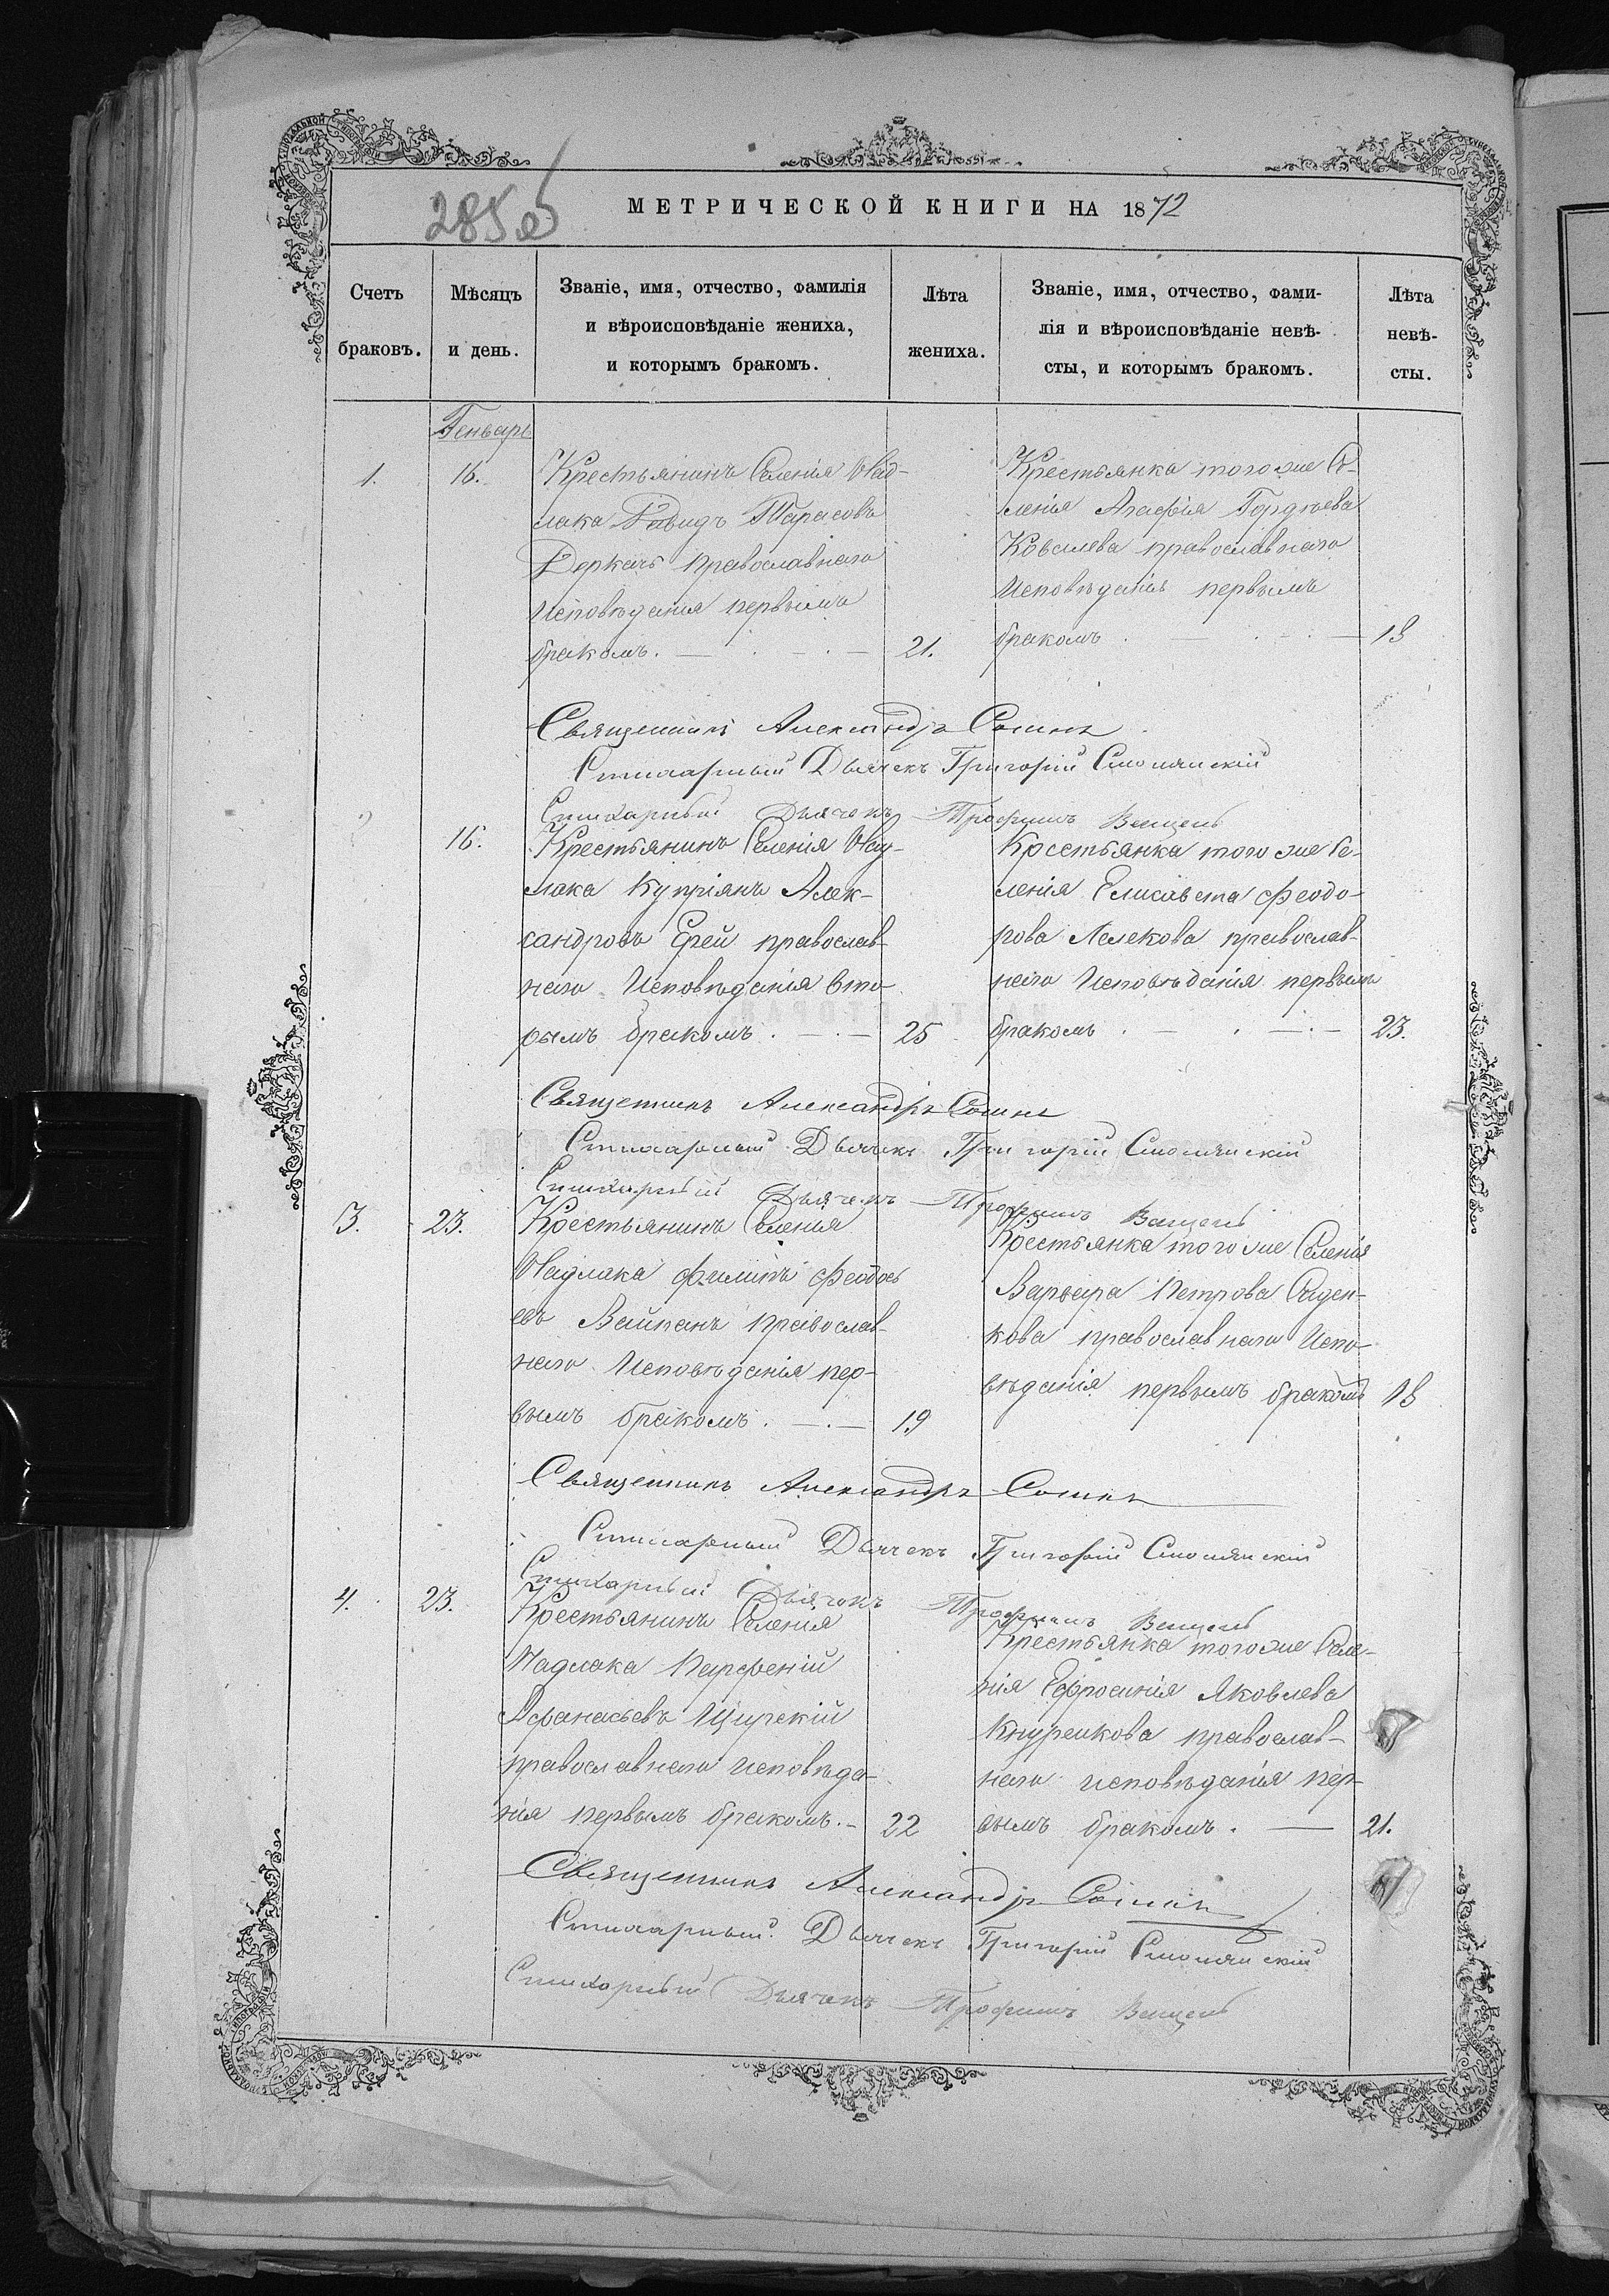 285 об
МЕТРИЧЕСКОЙ КНИГИ НА 1872
Счетъ браковъ.
Мѣсяцъ и день.
Званіе, имя, отчество, фамилія
и вѣроисповѣданіе жениха,
и которымъ бракомъ.
Лѣта жениха.
Званіе, имя, отчество, фами-
лія и вѣроисповѣданіе невѣ-
сты, и которымъ бракомъ.
Лѣта невѣ-
сты.
Генварь
1.
16.
Крестьянинъ Селенія Над-
лака Давидъ Тарасовъ
Деркачъ православнаго
Исповѣданія первымъ
бракомъ.
21.
Крестьянка того же Се-
ленія Агафія Гордѣева
Ковалева православнаго
Исповѣданія первымъ
бракомъ
18
Священникъ Александръ
Стихарный Дьячекъ Григорій Смолянскій
Стихарный Дьячекъ Трофимъ
2
16.
Крестьянинъ Селенія Над-
лака Купріянъ Алек-
сандровъ Ерей православ-
наго Исповѣданія вто-
рымъ бракомъ
25
Крестьянка того же Се-
ленія Елисавета Феодо-
рова Лелекова православ-
наго Исповѣданія первымъ
бракомъ
23.
Священникъ Александръ
Стихарный Дьячекъ Григорій Смолянскій
Стихарный Дьячекъ Трофимъ
3.
23.
Крестьянинъ Селенія
Надлака Филипъ Феодось
евъ Вайпанъ православ-
наго Исповѣданія пер-
вымъ бракомъ.
19
Крестьянка того же Селенія
Варвара Петрова
кова православнаго Испо-
вѣданія первымъ бракомъ
18
Священникъ Александръ
Стихарный Дьячекъ Григорій Смолянскій
Стихарный Дьячекъ Трофимъ
4.
23.
Крестьянинъ Селенія
Надлака Парфеній
Афанасьевъ Щирскій
православнаго исповѣда-
нія первымъ бракомъ.
22
Крестьянка того же Селе-
нія Ефросинія Яковлева
Кнуренкова православ-
наго исповѣданія пер-
вымъ бракомъ.
21.
Священникъ Александръ
Стихарный Дьячекъ Григорій Смолянскій
Стихарный Дьячекъ Трофимъ